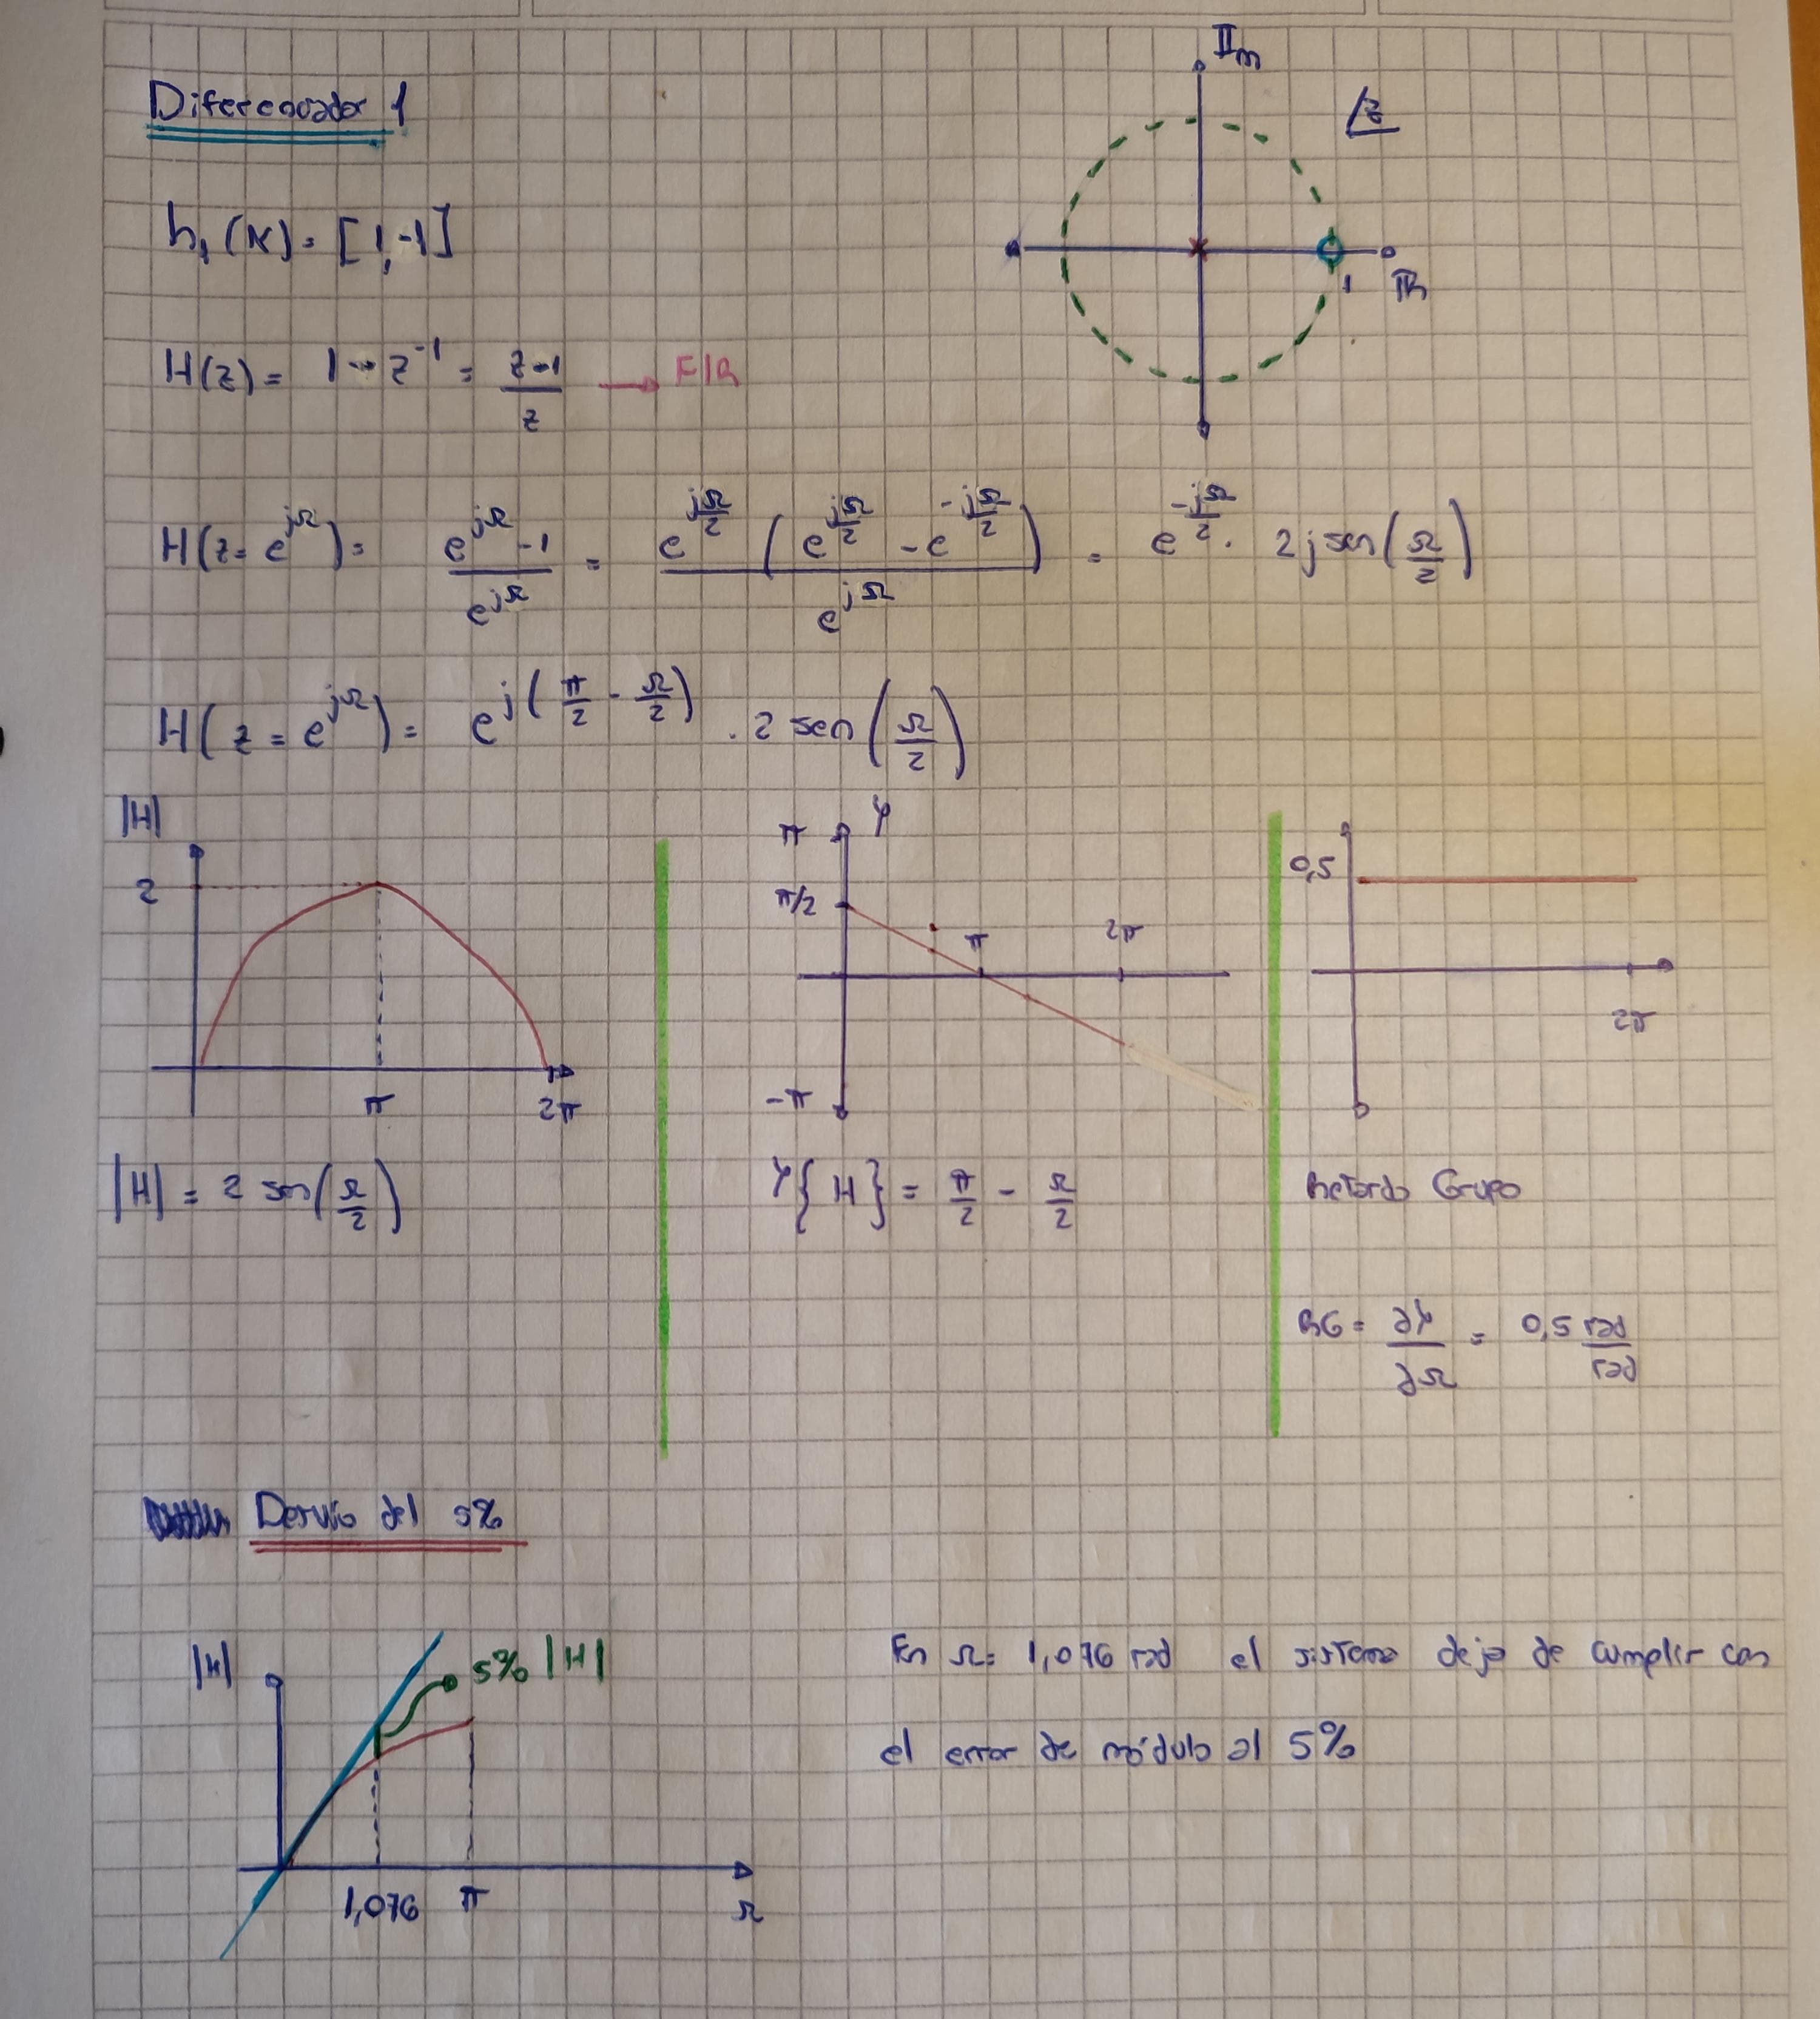 Diferenciador 1
h₁(k) = [1,-1]
H(z) = 1 - z⁻¹ = (z-1)/z → FIR
IIm
z
1 IR
H(z = e^{jΩ}) = (e^{jΩ} - 1)/e^{jΩ} = e^{jΩ/2} (e^{jΩ/2} - e^{-jΩ/2})/e^{jΩ} = e^{-jΩ/2} . 2j sen(Ω/2)
H(z = e^{jΩ}) = e^{j(π/2 - Ω/2)} . 2 sen(Ω/2)
|H|
2
π 2π
|H| = 2 sen(Ω/2)
π φ
π/2
π 2π
-π
φ{H} = π/2 - Ω/2
0,5
2π
Retardo Grupo
RG = ∂φ/∂Ω = 0,5 rad/rad
Desvío del 5%
|H| 5% |H|
1,076 π Ω
En Ω = 1,076 rad el sistema deja de cumplir con
el error de módulo al 5%